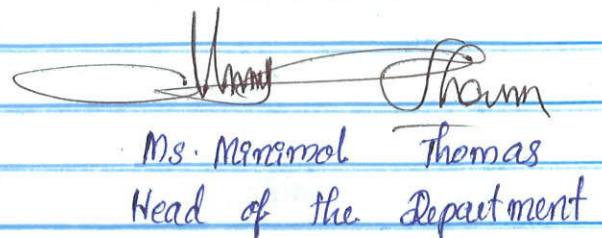 Ms. Minimol Thomas
Head of the Department